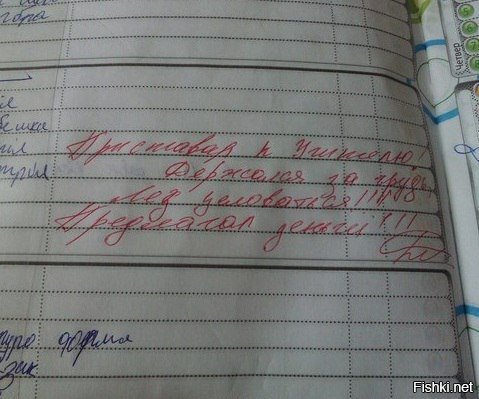 гора
Четверг
Приставал к учителю!
Держался за грудь
Лез целоваться!!!!
Предлагал деньги!!!
форма
Fishki.net